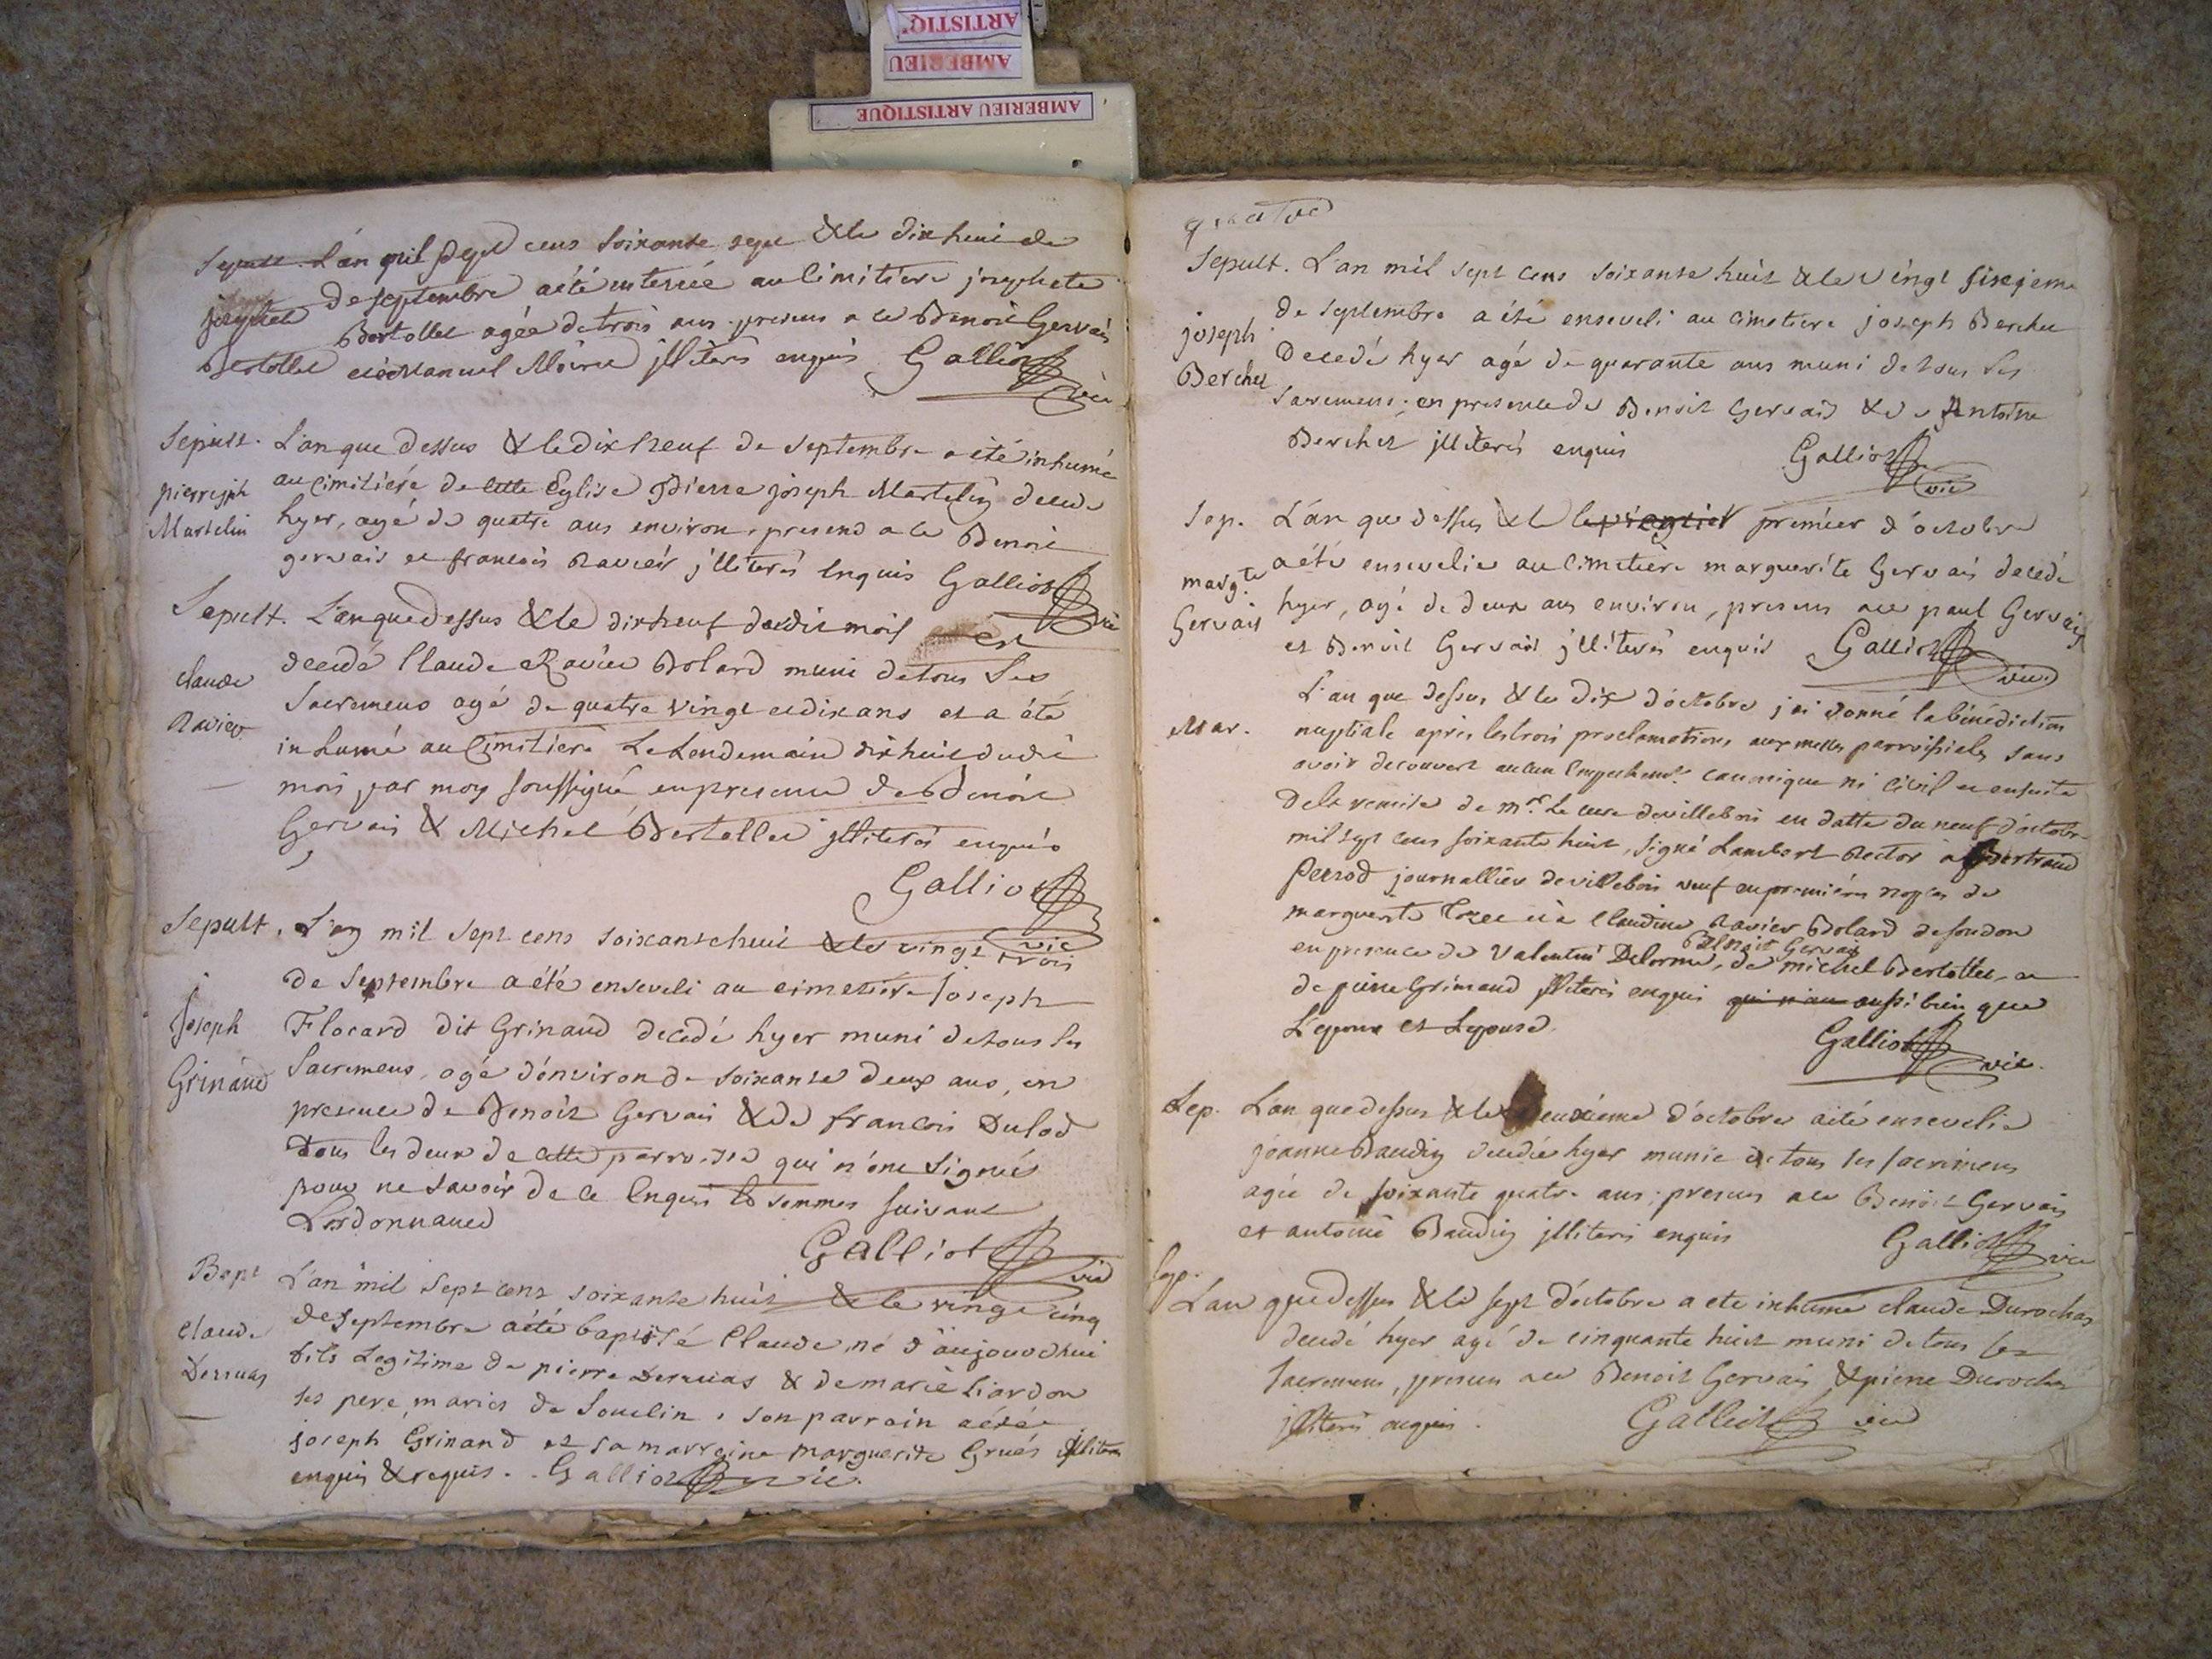 ARTISTIQ
AMBERIEU
AMBERIEU ARTISTIQUE
Sepult. L'an mil sept cens soixante sept & le dix huit de
josephte de septembre a été enterrée au Cimitiere josephete
Bertollet Bertollet agée de trois ans presens a ce Benoit Gervais
et emanuel Moiroud jlliterés enquis Galliot
vic
Sepult. L'an que dessus & le dix neuf de septembre a été inhumé
pierre jph au Cimitiére de cette Eglise Pierre joseph Martelin decede
Martelin hyer, agé de quatre ans environ, presend a ce Benoit
gervais et francois Ravier jlliterés Enquis Galliot
vic
Sepult. L'an que dessus & le dix neuf dudit mois est
claude decedé Claude Ravier Bolard muni de tous Ses
Ravier Sacremens agé de quatre vingt et dix ans et a été
inhumé au Cimitiére Le Lendemain dix huit dudit
mois par moy soussigné en presence de Benoit
Gervais & Michel Bertollet jlliterés enquis
Galliot
vic
Sepult. L'an mil sept cens soixante huit & le vingt trois
de septembre a été enseveli au cimetiere joseph
joseph Flocard dit Grinand decedé hyer muni de tous les
Grinand Sacremens, agé d'environ de soixante deux ans, en
presence de Benoit Gervais & de francois Dulod
tous les deux de cette parroisse qui n'ont signés
pour ne savoir de ce Enquis et sommes suivant
L'ordonnance
Galliot
vic
Bapt L'an mil sept cens soixante huit & le vingt cinq
de septembre a été baptisé Claude né d'aujourdhui
claude fils Legitime de pierre Deruas & de marie Liardon
Deruas ses pere maries de Souclin. son parrain a été
joseph Grinand et sa marreine marguerite Grués jlliteres
enquis & requis. Galliot vic.
quatre
Sepult. L'an mil sept cens soixante huit & le vingt sixjeme
de septembre a été enseveli au cimetiere joseph Berchet
joseph decedé hyer agé de quarante ans muni de tous Ses
Berchet Sacremens; en presence de Benoit Gervais & de Antoine
Berchet jlliterés enquis Galliot
vic
Sep. L'an que dessus & le premier d'octobre
a été ensevelie au Cimetiere marguerite Gervais decedé
marg.te hyer, agé de deux ans environ, presens a ce paul Gervais
Gervais et Benoit Gervais jlliterés enquis Galliot
vic
L'an que dessus & le dix d'octobre j'ai donné la bénédiction
Mar. nuptiale aprés les trois proclamations aux messes parroissiales sans
avoir decouvert aucun Empechemt. canonique ni Civil et ensuite
de la remise de mr Le cure de villebois en datte du neuf d'octobre
mil sept cens soixante huit, signé Lambert Rector a Bertrand
Perrod journallier de villebois veuf en premiéres nopces de
marguerite et a Claudine Ravier Bolard de soudon
Benoit Gervais
en presence de Valentin Delorme, de michel Bertollet, et
de pierre Grimand jlliterés enquis aussi bien que
L'epoux et Lepouse. Galliot
vic.
Sep. L'an que dessus & le deuxieme d'octobre a été ensevelie
jeanne Baudin decedée hyer munie de tous ses sacremens
agée de soixante quatre ans; presens a ce Benoit Gervais
et antoine Baudin jlliterés enquis Galliot vic
Sep.
L'an que dessus & le sept d'octobre a ete inhume claude Durochas
decedé hyer agé de cinquante huit muni de tous les
Sacremens, presens a ce Benoit Gervais & pierre Durochas
jlliterés enquis. Galliot vic